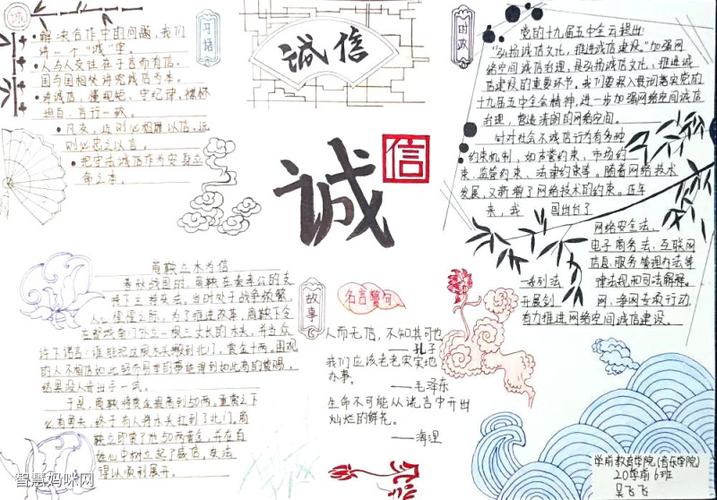 诚
习语
解决合作中的问题，我们
讲一个"诚"字。
人与人交往在于言而有信，
国与国相处讲究诚信为本。
讲诚信、懂规矩、守纪律，襟怀
坦白、言行一致。
凡交，近则必相靡以信，远
则必忠之以言。
把守法诚信作为安身立
命之本。
诚信
诚
信
时政
党的十九届五中全会提出
"弘扬诚信文化，推进诚信建设。"加强网
络空间诚信治理，是弘扬诚信文化、推进诚
信建设的重要环节。我们要深入贯彻落实党的
十九届五中全会精神，进一步加强网络空间诚信
治理，营造清朗的网络空间。
针对社会不诚信行为有多种
约束机制，如声誉约束、市场约
束、监管约束、法律约束等。随着网络技术
发展，又新增了网络技术的约束。近年
来，我国出台了
网络安全法、
电子商务法、互联网
信息服务管理办法等
一系列法律法规和司法解释。
开展剑网、净网等专项行动
有力推进网络空间诚信建设。
故事
商鞅立木为信
春秋战国时，商鞅在秦孝公的支
持下主持变法。当时处于战争频繁、
人心惶惶之际，为了推进改革，商鞅下令
在都城南门外立一根三丈长的木头，并当众
许下诺言：谁能把这根木头搬到北门，赏金十两。围观
的人不相信如此轻而易举的事能得到如此高的赏赐，
结果没人肯出手一试。
于是，商鞅将赏金提高到50两。重赏之下
必有勇夫，终于有人将木头扛到了北门。商
鞅立即赏了他50两黄金，并在百
姓心中树立起了威信，变法
得以顺利展开。
名言警句
人而无信，不知其可也
——孔子
我们应该老老实实地
办事。
——毛泽东
生命不可能从谎言中开出
灿烂的鲜花。
——海涅
学前教育学院(音乐学院)
20学前6班
吴飞飞
智慧妈咪网